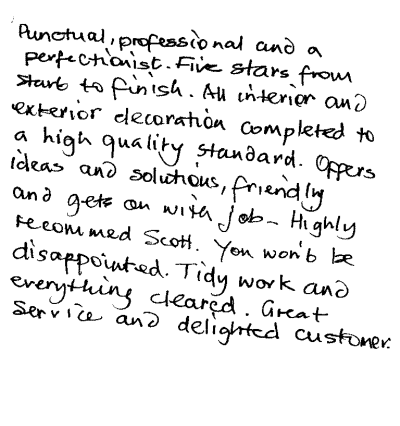 Punctual, professional and a
perfectionist. Five stars from
start to finish. All interior and
exterior decoration completed to
a high quality standard. Offers
ideas and solutions, friendly
and gets on with job - Highly
recommed Scott. You won't be
disappointed. Tidy work and
everything cleared. Great
Service and delighted customer.